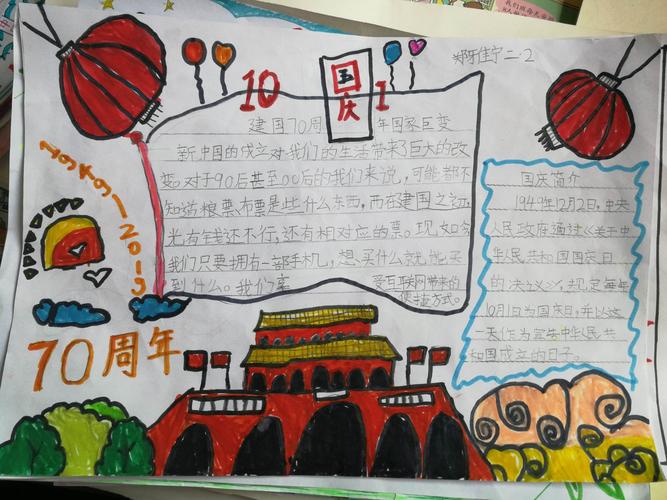 郑雅宁二.2
10
国庆
1
建国70周年国家巨变
新中国的成立对我们的生活带来了巨大的改
变。对于90后甚至00后的我们来说,可能都不
知道粮票、布票是些什么东西,而在建国之初,
光有钱还不行,还有相对应的票。现如今
我们只要拥有一部手机,想买什么就能买
到什么。我们
爱互联网带来的
便捷方式。
国庆简介
1949年12月2日,中央
人民政府通过《关于中
华人民共和国国庆日
的决议》,规定每年
10月1日为国庆日,并以这
一天作为宣告中华人民共
和国成立的日子。
1949—2019
70周年